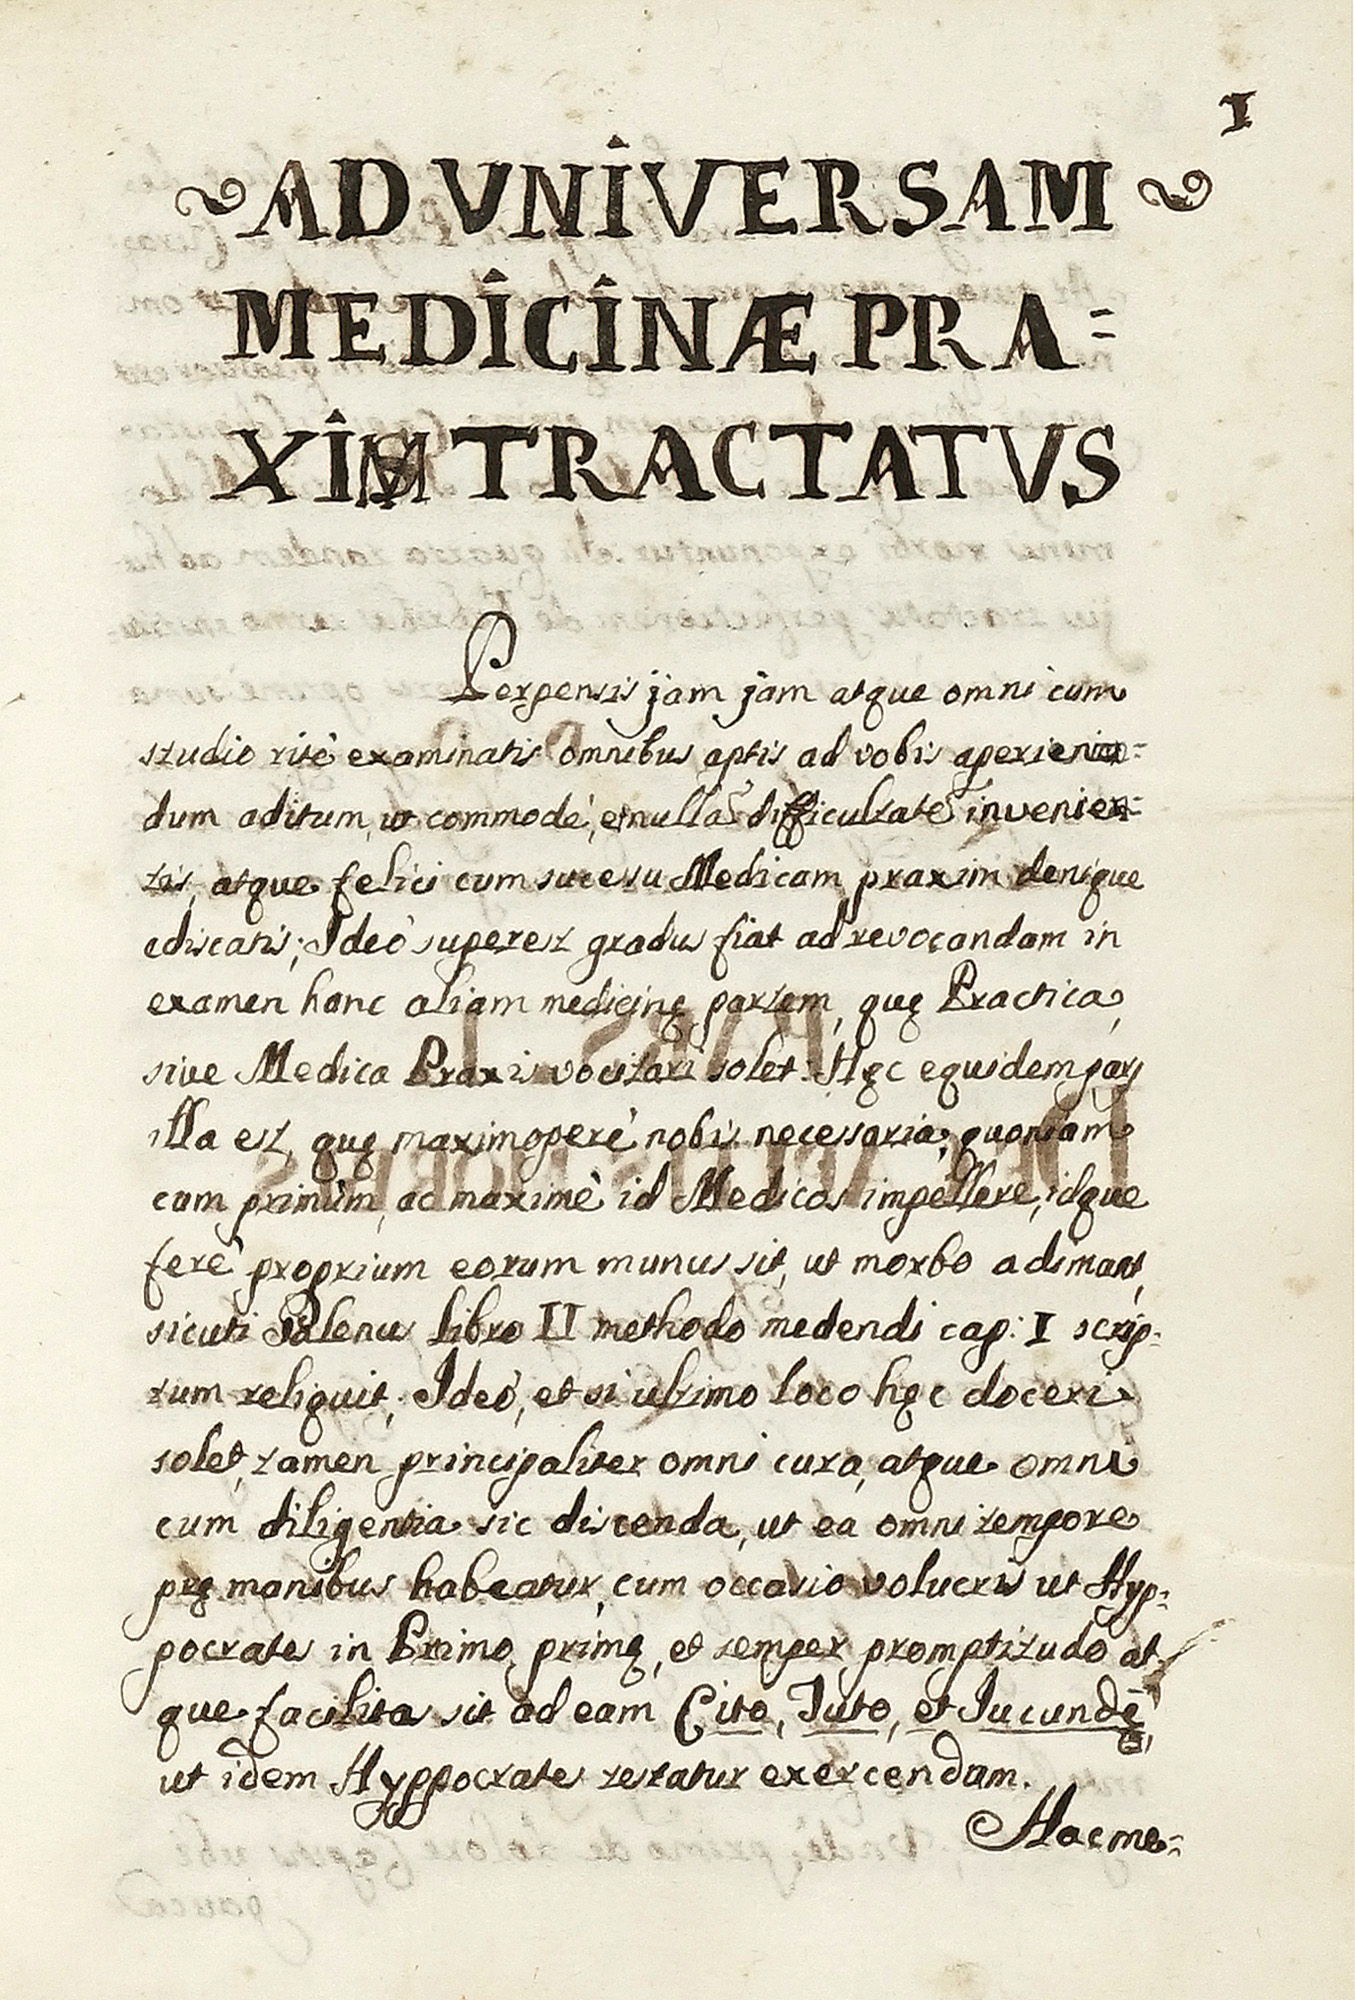 1
AD VNIVERSAM
MEDICINÆ PRA=
XIM TRACTATVS
Perpensis jam jam atque omni cum
studio ritè examinatis omnibus aptis ad vobis aperien=
dum aditum, ut commodè, et nulla difficultate invenien=
tis, atque felici cum sucesu Medicam praxim denique
ediscatis; Ideò superest gradus fiat ad revocandam in
examen hanc aliam medicinę partem, quę Practica,
sive Medica Praxis vocitari solet. Hęc equidem pars
illa est, quę maximoperè nobis necessaria; quoniam
cum primùm, ac maximè id Medicos impellere, idque
ferè proprium eorum munus sit, ut morbo adimant,
sicuti Galenus libro II methodo medendi cap: I scrip-
tum reliquit; Ideò, et si ultimo loco hęc doceri
solet, tamen principaliter omni cura, atque omni
cum diligentia sic discenda, ut ea omni tempore
prę manibus habeatur, cum occasio volucris ut Hyp-
pocrates in Primo primę, et semper promptitudo at-
que facilitas sit ad eam Cito, Tuto, et Jucundè,
ut idem Hyppocrates testatur exercendam.
Hac me=